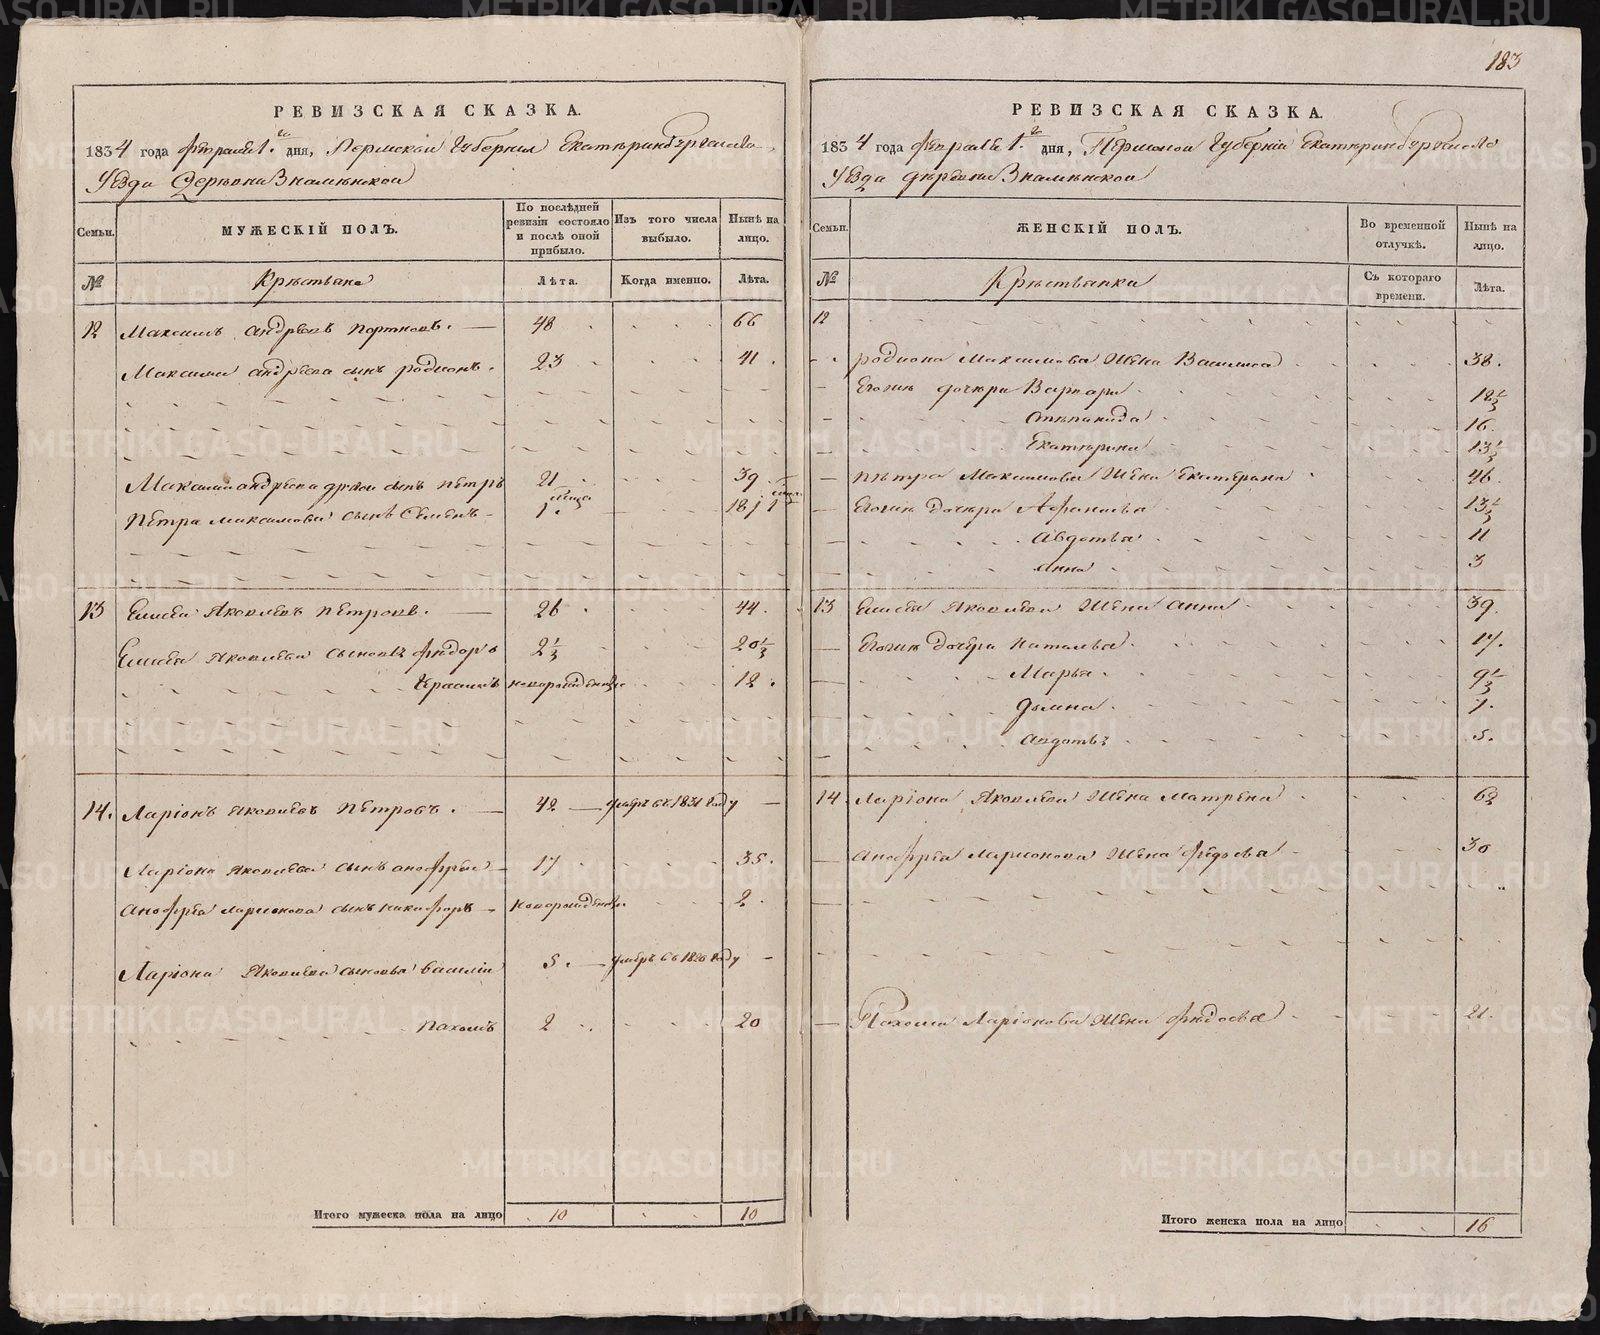 183
РЕВИЗСКАЯ СКАЗКА.
1834 года февраля 1.го дня, Пермской Губернии Екатеринбургскаго
Уезда Деревни Знаменской
Семьи.
МУЖЕСКІЙ ПОЛЪ.
По послѣдней ревизіи состояло и послѣ оной прибыло.
Изъ того числа выбыло.
Нынѣ на лицо.
№
Крестьяне
Лѣта.
Когда именно.
Лѣта.
12 Максимъ андреевъ портновъ. 48 66
Максима андреева сынъ родионъ. 23 41
Максима андреева другой сынъ петръ 21 39
Петра максимова сынъ Семенъ 1 18
13 Елисей Яковлевъ петровъ. 26 44.
Елисея Яковлева сыновья федоръ 2 1/2 20 1/2
новорожденъ 12.
14. Ларіонъ яковлевъ петровъ. 42 умеръ въ 1831 году
Ларіона яковлева сынъ анофрей 17 35.
Анофрея ларионова сынъ никифоръ новорожденъ. 2.
Ларіона Яковлева сыновья василіи 5. умеръ въ 1820 году
пахомъ 2 20
Итого мужеска пола на лицо 10 10
РЕВИЗСКАЯ СКАЗКА.
1834 года февраля 1.го дня, Пермской Губерніи Екатеринбургскаго
Уезда деревни Знаменской
Семьи.
ЖЕНСКІЙ ПОЛЪ.
Во временной отлучкѣ.
Нынѣ на лицо.
№
Крестьянки
Съ котораго времени.
Лѣта.
12
родиона Максимова Жена Василиса 38.
Егожъ дочери Варвара 18 1/2
Степанида 16
Екатерина 13 1/2
петра Максимова Жена Екатерина 46.
Егожъ дочери Афанасья 13 1/2
Авдотья 11
Анна 3
13 Елисея Яковлева Жена Анна 39.
Егожъ дочери Наталья. 17.
Марья. 9 1/2
Домна. 7.
Авдотья 5.
14. Ларіона Яковлева Жена Матрена 62
Анофрея Ларионова Жена федосья 30
Пахома Ларіонова Жена федосья 21.
Итого женска пола на лицо 16
METRIKI.GASO-URAL.RU